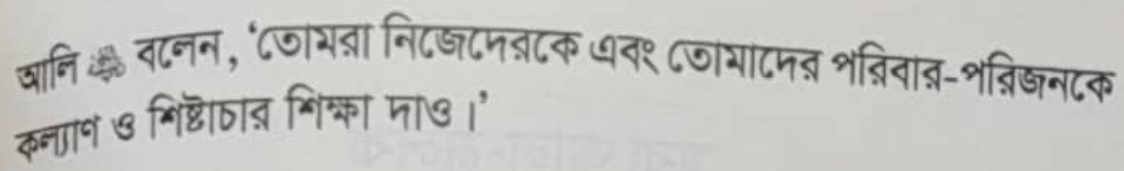 আলি বলেন, ‘তোমরা নিজেদেরকে এবং তোমাদের পরিবার-পরিজনকে
কল্যাণ ও শিষ্টাচার শিক্ষা দাও।’